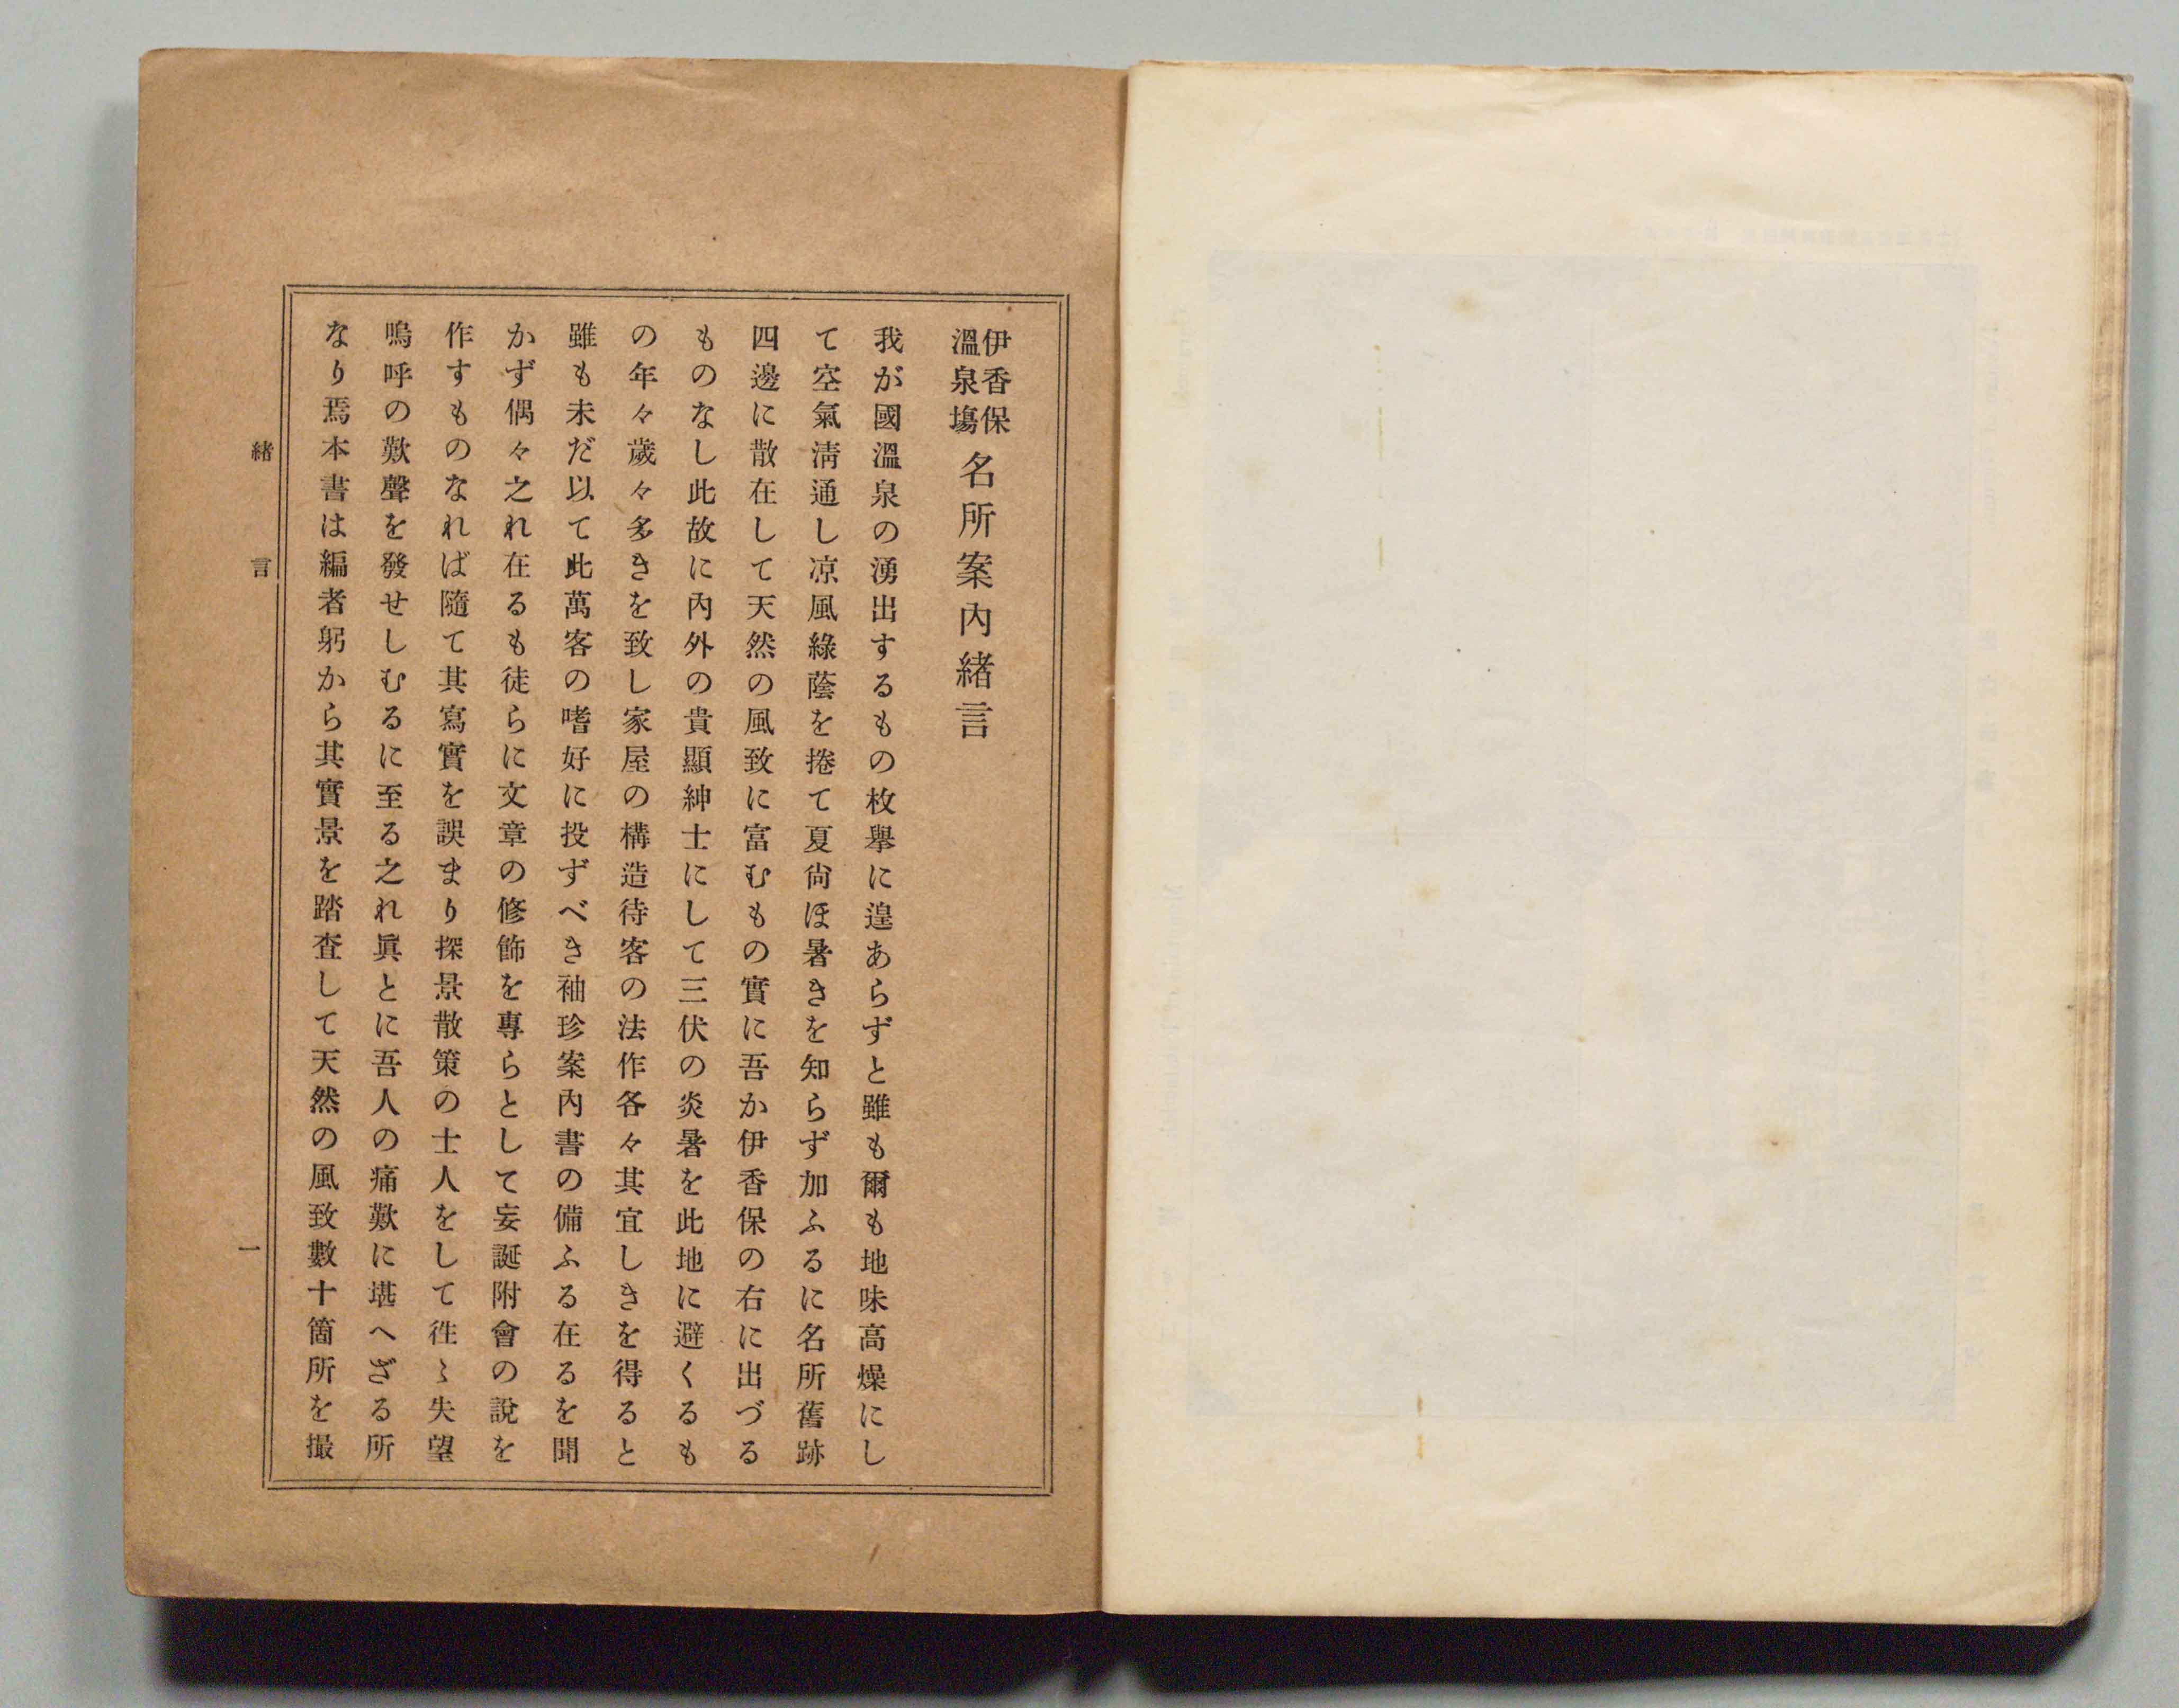 伊香保
溫泉塲
名所案內緒言
我が國溫泉の湧出するもの枚擧に遑あらずと雖も爾も地味高燥にし
て空氣淸通し凉風綠蔭を捲て夏尙ほ暑きを知らず加ふるに名所舊跡
四邊に散在して天然の風致に富むもの實に吾か伊香保の右に出づる
ものなし此故に內外の貴顯紳士にして三伏の炎暑を此地に避くるも
の年々歲々多きを致し家屋の構造待客の法作各々其宜しきを得ると
雖も未だ以て此萬客の嗜好に投ずべき袖珍案內書の備ふる在るを聞
かず偶々之れ在るも徒らに文章の修飾を專らとして妄誕附會の說を
作すものなれば隨て其寫實を誤まり探景散策の士人をして徃〻失望
嗚呼の歎聲を發せしむるに至る之れ眞とに吾人の痛歎に堪へざる所
なり焉本書は編者躬から其實景を踏査して天然の風致數十箇所を撮
緖言
一